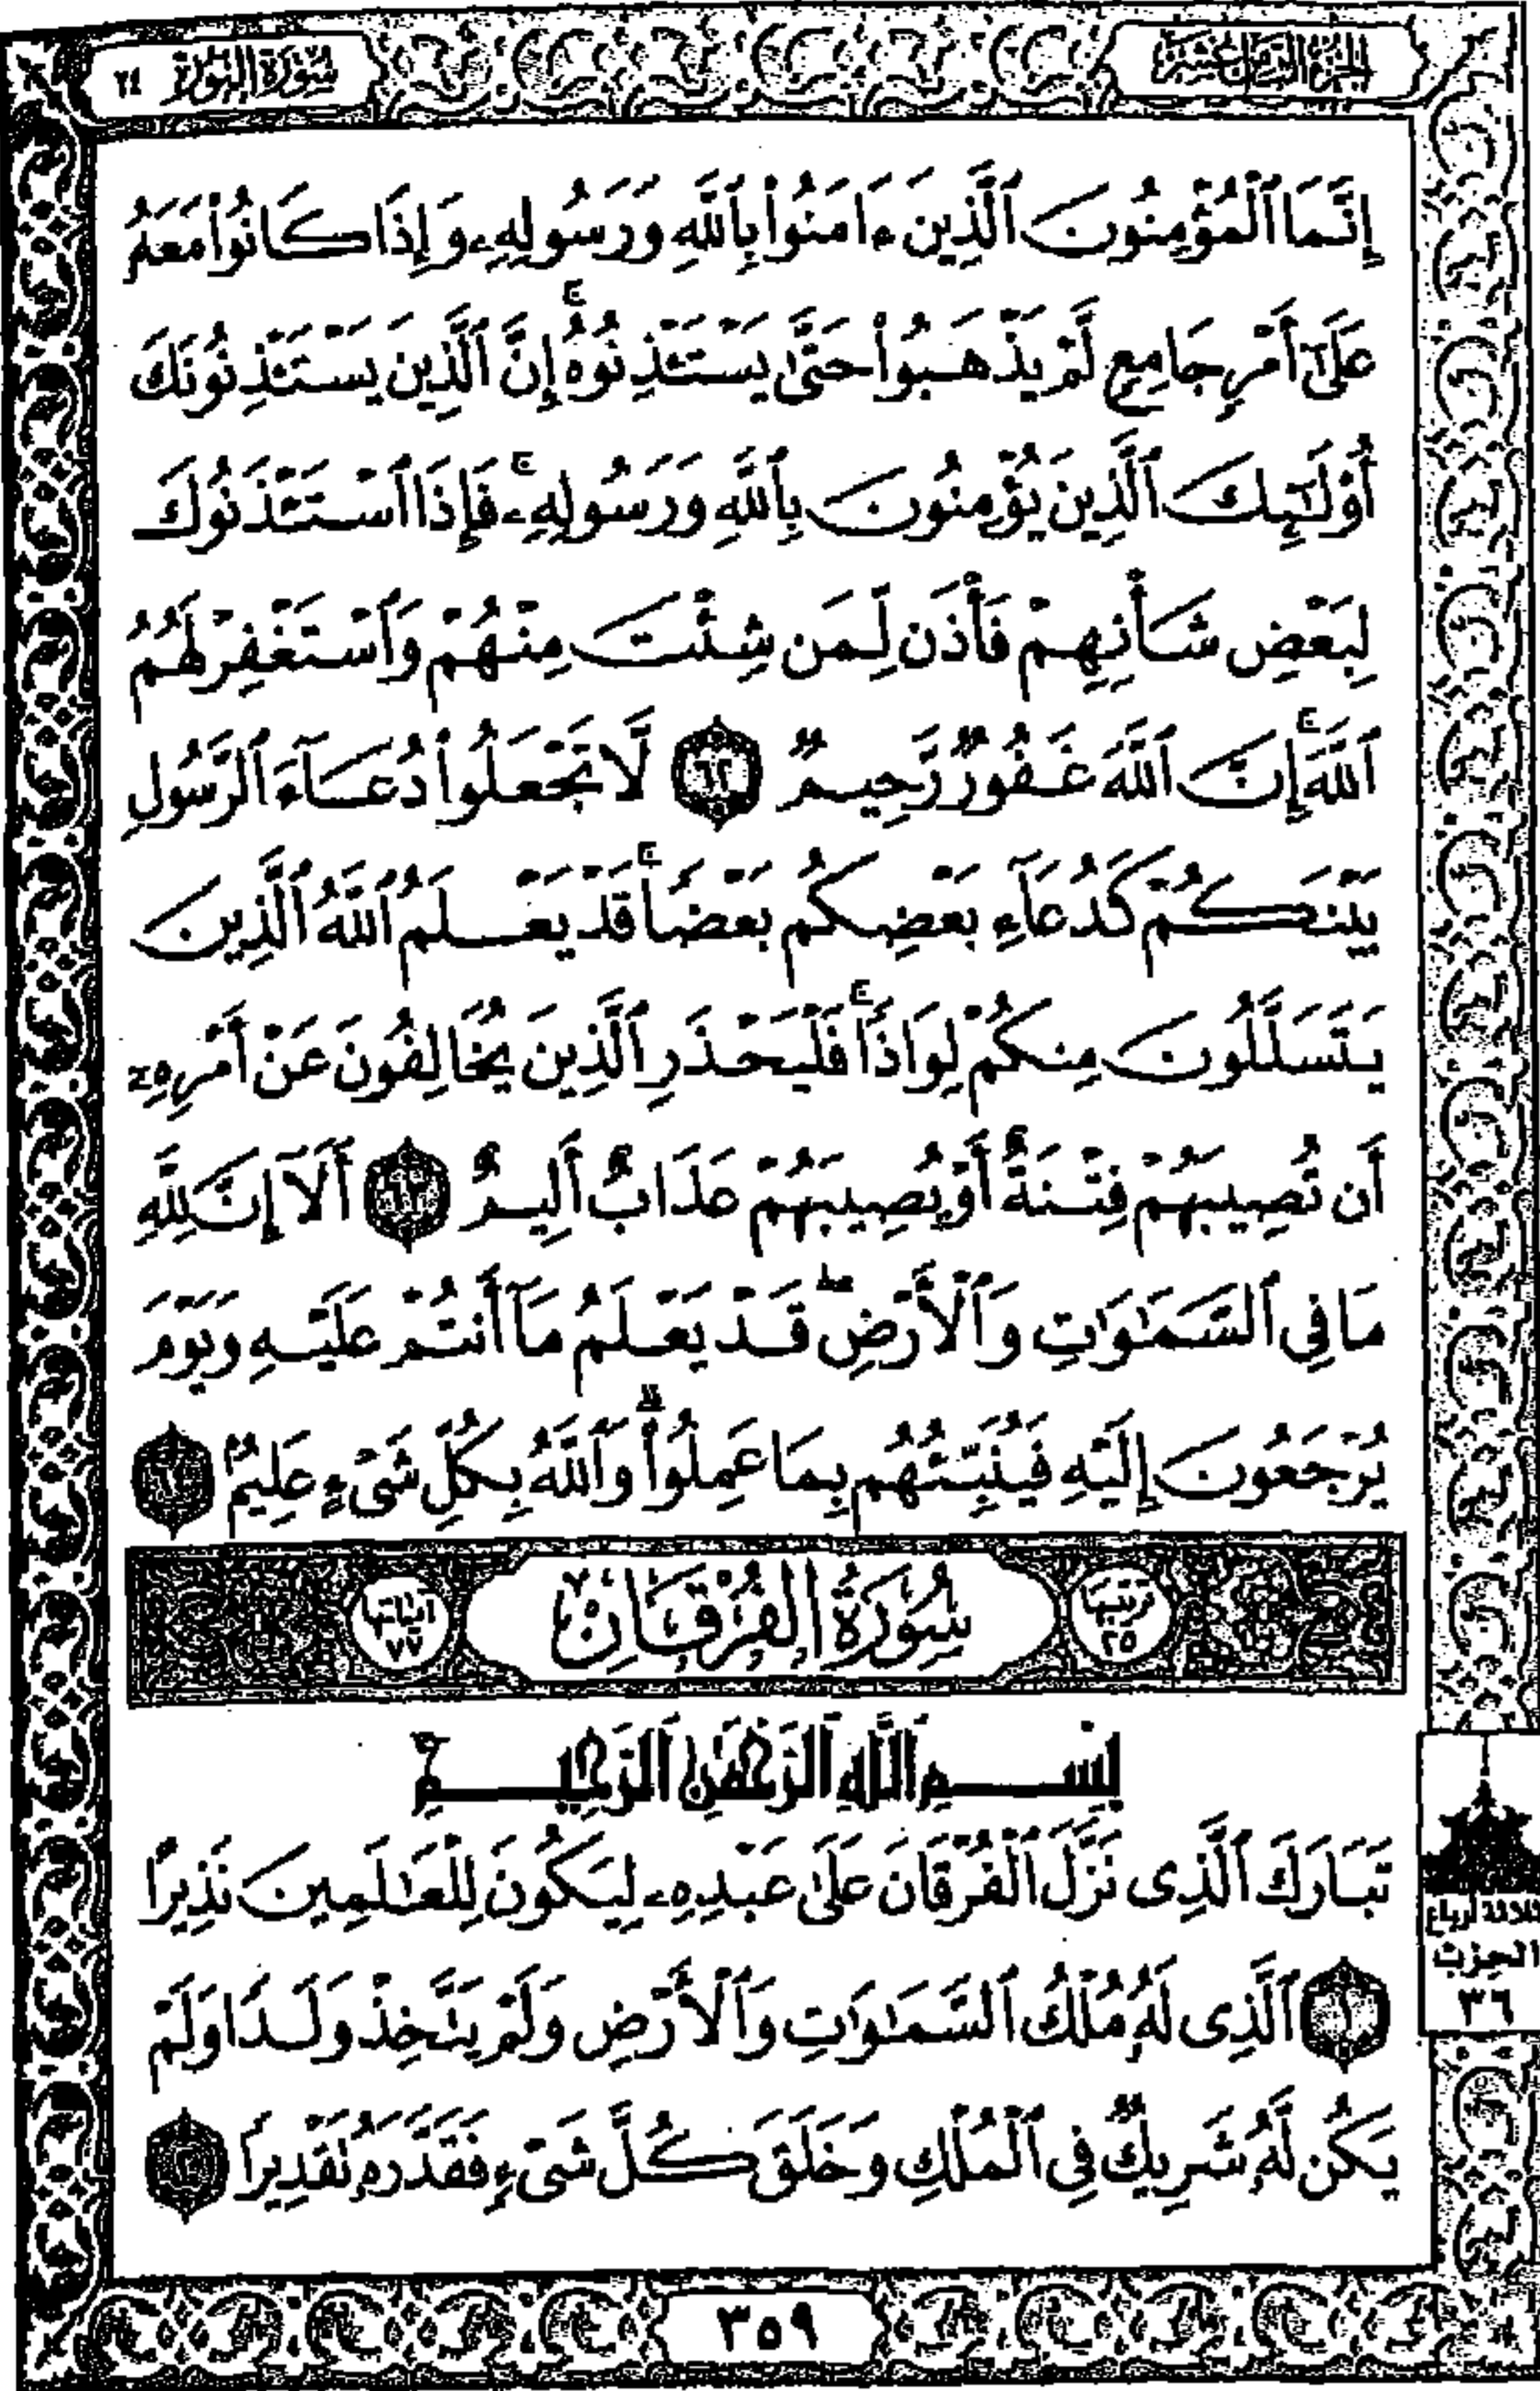 الجزء الثامن عشر
سورة النور ٢٤
إِنَّمَا ٱلْمُؤْمِنُونَ ٱلَّذِينَ ءَامَنُوا۟ بِٱللَّهِ وَرَسُولِهِۦ وَإِذَا كَانُوا۟ مَعَهُۥ
عَلَىٰٓ أَمْرٍ جَامِعٍ لَّمْ يَذْهَبُوا۟ حَتَّىٰ يَسْتَـْٔذِنُوهُ ۚ إِنَّ ٱلَّذِينَ يَسْتَـْٔذِنُونَكَ
أُو۟لَـٰٓئِكَ ٱلَّذِينَ يُؤْمِنُونَ بِٱللَّهِ وَرَسُولِهِۦ ۚ فَإِذَا ٱسْتَـْٔذَنُوكَ
لِبَعْضِ شَأْنِهِمْ فَأْذَن لِّمَن شِئْتَ مِنْهُمْ وَٱسْتَغْفِرْ لَهُمُ
ٱللَّهَ ۚ إِنَّ ٱللَّهَ غَفُورٌ رَّحِيمٌ ٦٢ لَّا تَجْعَلُوا۟ دُعَآءَ ٱلرَّسُولِ
بَيْنَكُمْ كَدُعَآءِ بَعْضِكُم بَعْضًا ۚ قَدْ يَعْلَمُ ٱللَّهُ ٱلَّذِينَ
يَتَسَلَّلُونَ مِنكُمْ لِوَاذًا ۚ فَلْيَحْذَرِ ٱلَّذِينَ يُخَالِفُونَ عَنْ أَمْرِهِۦٓ
أَن تُصِيبَهُمْ فِتْنَةٌ أَوْ يُصِيبَهُمْ عَذَابٌ أَلِيمٌ ٦٣ أَلَآ إِنَّ لِلَّهِ
مَا فِى ٱلسَّمَـٰوَٰتِ وَٱلْأَرْضِ ۖ قَدْ يَعْلَمُ مَآ أَنتُمْ عَلَيْهِ وَيَوْمَ
يُرْجَعُونَ إِلَيْهِ فَيُنَبِّئُهُم بِمَا عَمِلُوا۟ ۗ وَٱللَّهُ بِكُلِّ شَىْءٍ عَلِيمٌۢ ٦٤
ترتيبها ٢٥
سُورَةُ الفُرْقَانِ
آياتها ٧٧
بِسْمِ ٱللَّهِ ٱلرَّحْمَـٰنِ ٱلرَّحِيمِ
تَبَارَكَ ٱلَّذِى نَزَّلَ ٱلْفُرْقَانَ عَلَىٰ عَبْدِهِۦ لِيَكُونَ لِلْعَـٰلَمِينَ نَذِيرًا
١ ٱلَّذِى لَهُۥ مُلْكُ ٱلسَّمَـٰوَٰتِ وَٱلْأَرْضِ وَلَمْ يَتَّخِذْ وَلَدًا وَلَمْ
يَكُن لَّهُۥ شَرِيكٌ فِى ٱلْمُلْكِ وَخَلَقَ كُلَّ شَىْءٍ فَقَدَّرَهُۥ تَقْدِيرًا ٢
ثلاثة أرباع
الحزب
٣٦
٣٥٩